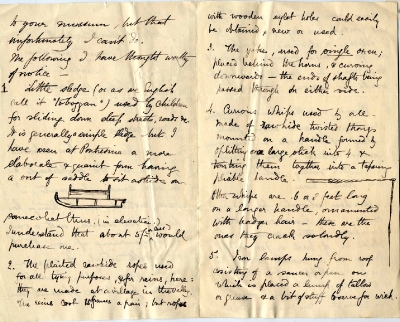 to your museum, but that
unfortunately I can't do.
The following I have thought worthy
of notice —
1. Little sledge (or as we English
call it "toboggan") used by children
for sliding down steep streets, roads &c.
It is generally a simple sledge - but I
have seen at Pontresina a more
elaborate & quaint form having
a sort of saddle to sit astride on
somewhat thus, (in elevation) and
I understand that about 5 fr. would
purchase one.
2. The plaited rawhide ropes used
for all tying purposes, & for reins, here:
they are made at a village in the valley.
The reins cost francs a pair, but ropes
with wooden eyelet holes could easily
be obtained, new or used.
3. The yokes, used for single oxen;
placed behind the horns, & curving
downwards — the ends of shafts being
passed through on either side.
4. Curious whips used by all.
made of raw-hide twisted thongs
mounted on a handle formed by
splitting a large stick into 4 &
twisting them together into a tapering
pliable handle.
Other whips are 6 or 8 feet long
on a longer handle ornamented
with badger hair — these are the
ones they crack so loudly.
5. Iron lamps hung from roof
consisting of a saucer or pan in
which is placed a lump of tallow
or grease & a bit of stuff to serve for wick.